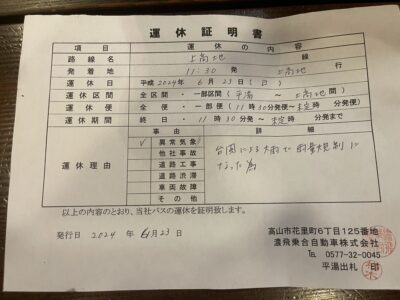 運休証明書
項目 運休の内容
路線名 上高地 線
発着地 11:30 発 上高地 行
運休日 平成 2024年 6月 23日 (日)
運休区間 全区間・一部区間(平湯 〜 上高地 間)
運休便 全便・一部便(11時30分発便〜未定時 分発便)
運休期間 終日・11時30分発〜未定時 分発まで
運休理由 事由 詳細
✓ 異常気象 台風による大雨で雨量規制に
他社事故 なった為
道路工事
道路渋滞
車両故障
その他
以上の内容のとおり、当社バスの運休を証明致します。
発行日 2024 年 6月23日
高山市花里町6丁目125番地
濃飛乗合自動車株式会社
TEL 0577-32-0045
平湯出札 印